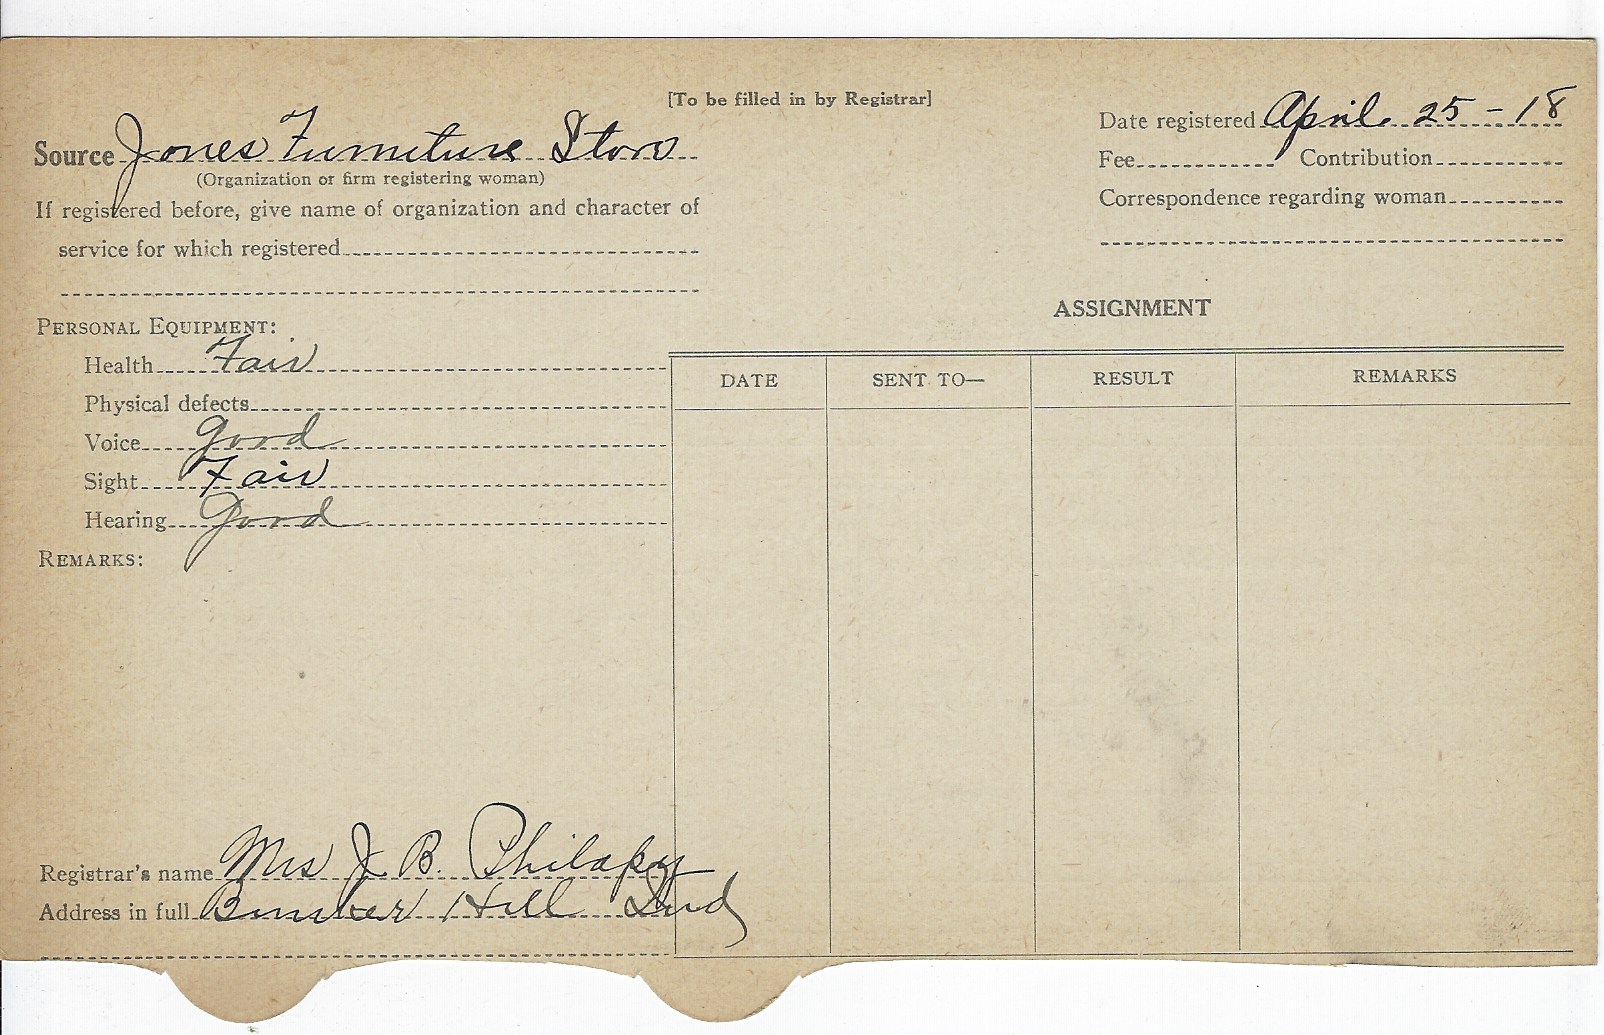 [To be filled in by Registrar]
Source Jones Furniture Store
(Organization or firm registering woman)
If registered before, give name of organization and character of
service for which registered
Date registered April 25-18
Fee Contribution
Correspondence regarding woman
PERSONAL EQUIPMENT:
Health Fair
Physical defects
Voice Good
Sight Fair
Hearing Good
REMARKS:
ASSIGNMENT
DATE SENT TO— RESULT REMARKS
Registrar's name Mrs J. B. Philapy
Address in full Bunker Hill Ind